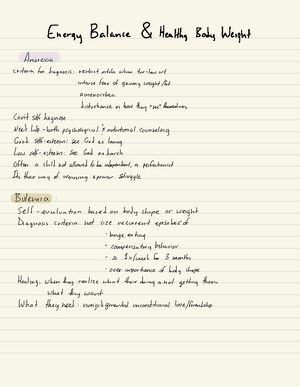 Energy Balance & Healthy Body Weight
Anorexia
Criteria for diagnosis: restrict intake when too low wt
intense fear of gaining weight/fat
amenorrhea
disturbance in how they "see" themselves
Can't self diagnose
Need help - both psychological & nutritional counseling
Good self-esteem: see God as loving
Low self-esteem: see God as harsh
Often a child not allowed to be independent, a perfectionist
Its their way of winning a power struggle
Bulemica:
Self-evaluation based on body shape or weight
Diagnosis criteria: not size recurrent episodes of
- binge eating
- compensatory behavior
- ≥ 1x/week for 3 months
- over importance of body shape
Healing: when they realize what their doing is not getting them
what they want
What they need: nonjudgmental unconditional love/friendship